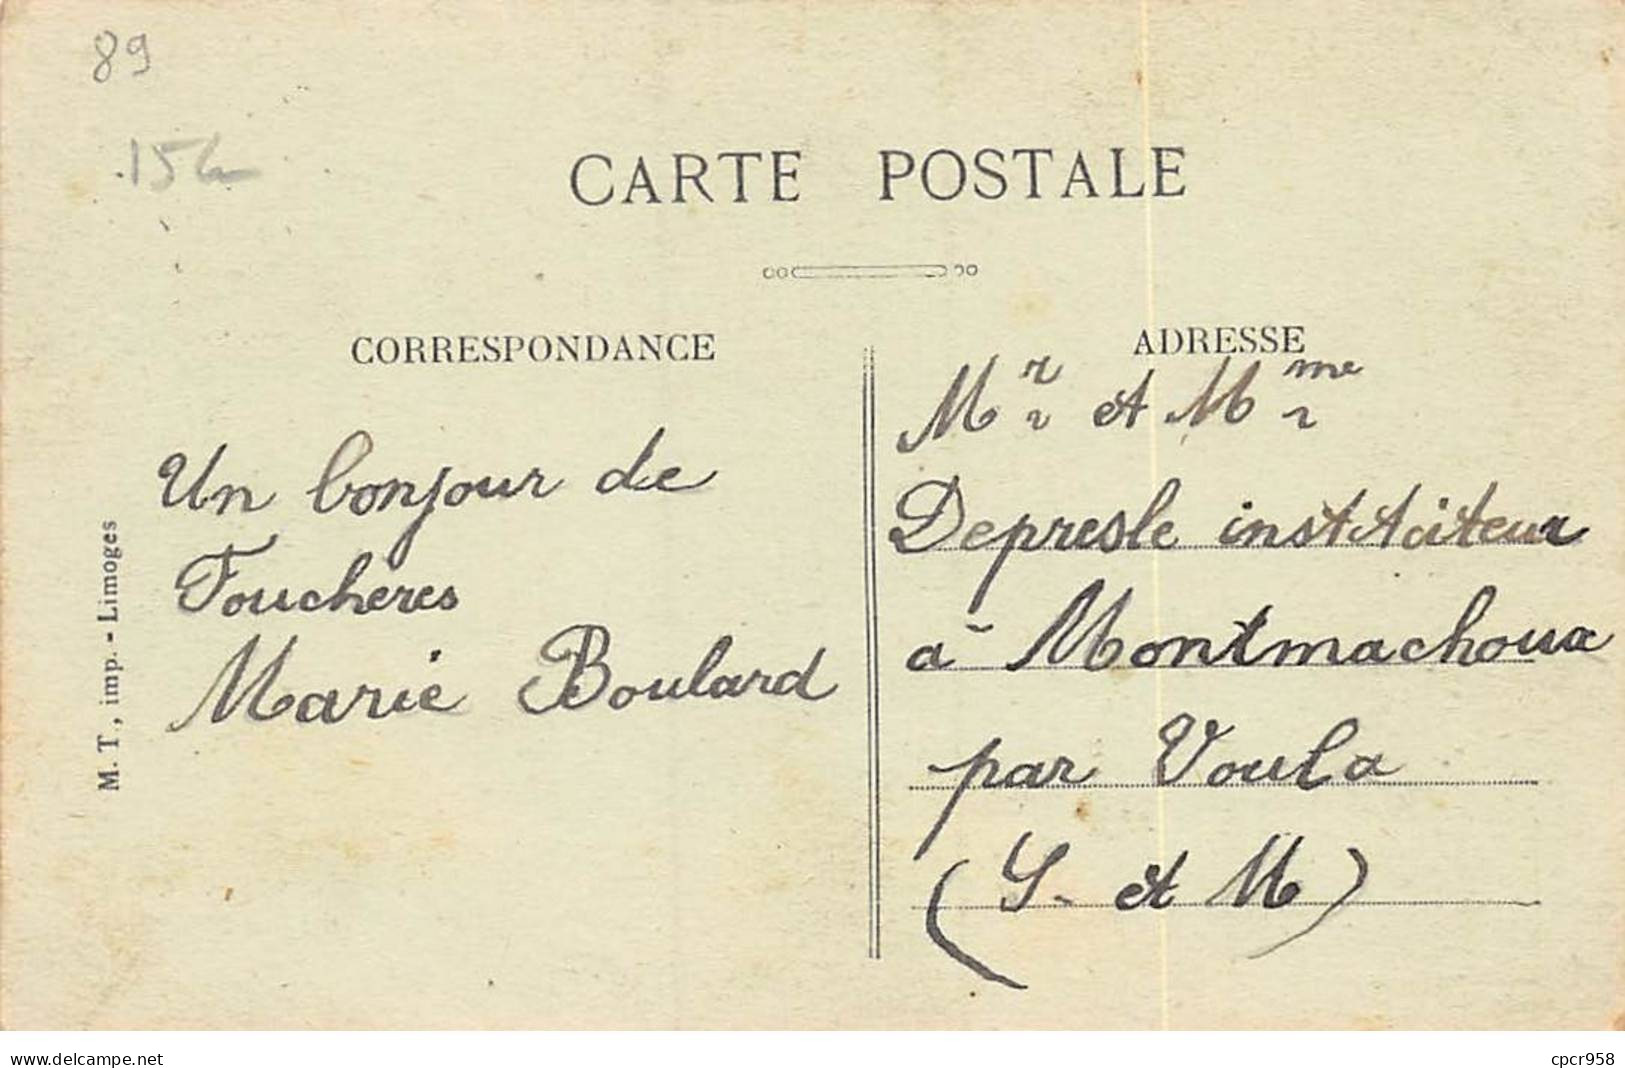 89
CARTE POSTALE
CORRESPONDANCE
Un bonjour de
Foucheres
Marie Boulard
M. T., imp. - Limoges
ADRESSE
Mr et Mme
Depresle instituteur
à Montmachoux
par Voulx
(S. et M)
www.delcampe.net
cpcr958